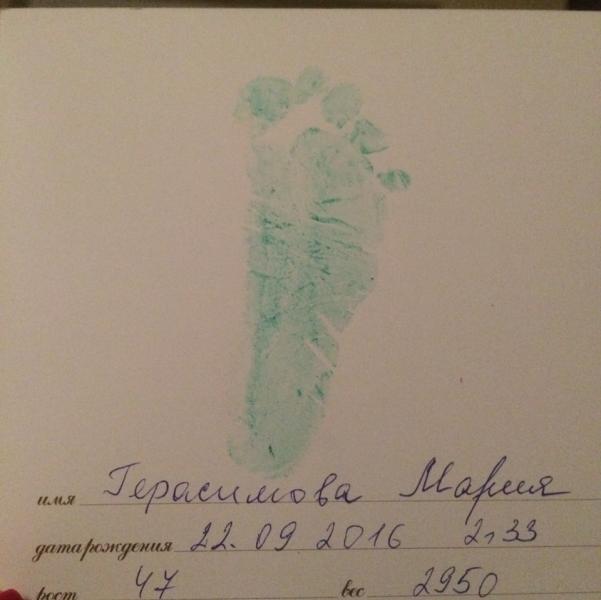 имя Герасимова Мария
дата рождения 22.09 2016 2,33
рост 47 вес 2950